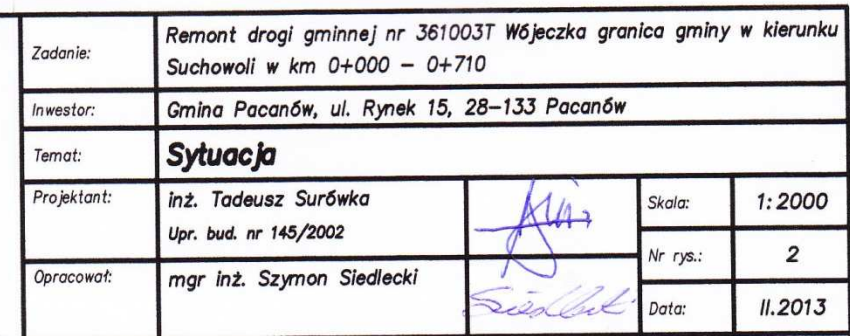 Zadanie:
Remont drogi gminnej nr 361003T Wójeczka granica gminy w kierunku
Suchowoli w km 0+000 – 0+710
Inwestor:
Gmina Pacanów, ul. Rynek 15, 28–133 Pacanów
Temat:
Sytuacja
Projektant:
inż. Tadeusz Surówka
Upr. bud. nr 145/2002
Skala:
1:2000
Nr rys.:
2
Opracował:
mgr inż. Szymon Siedlecki
Siedlecki
Data:
II.2013